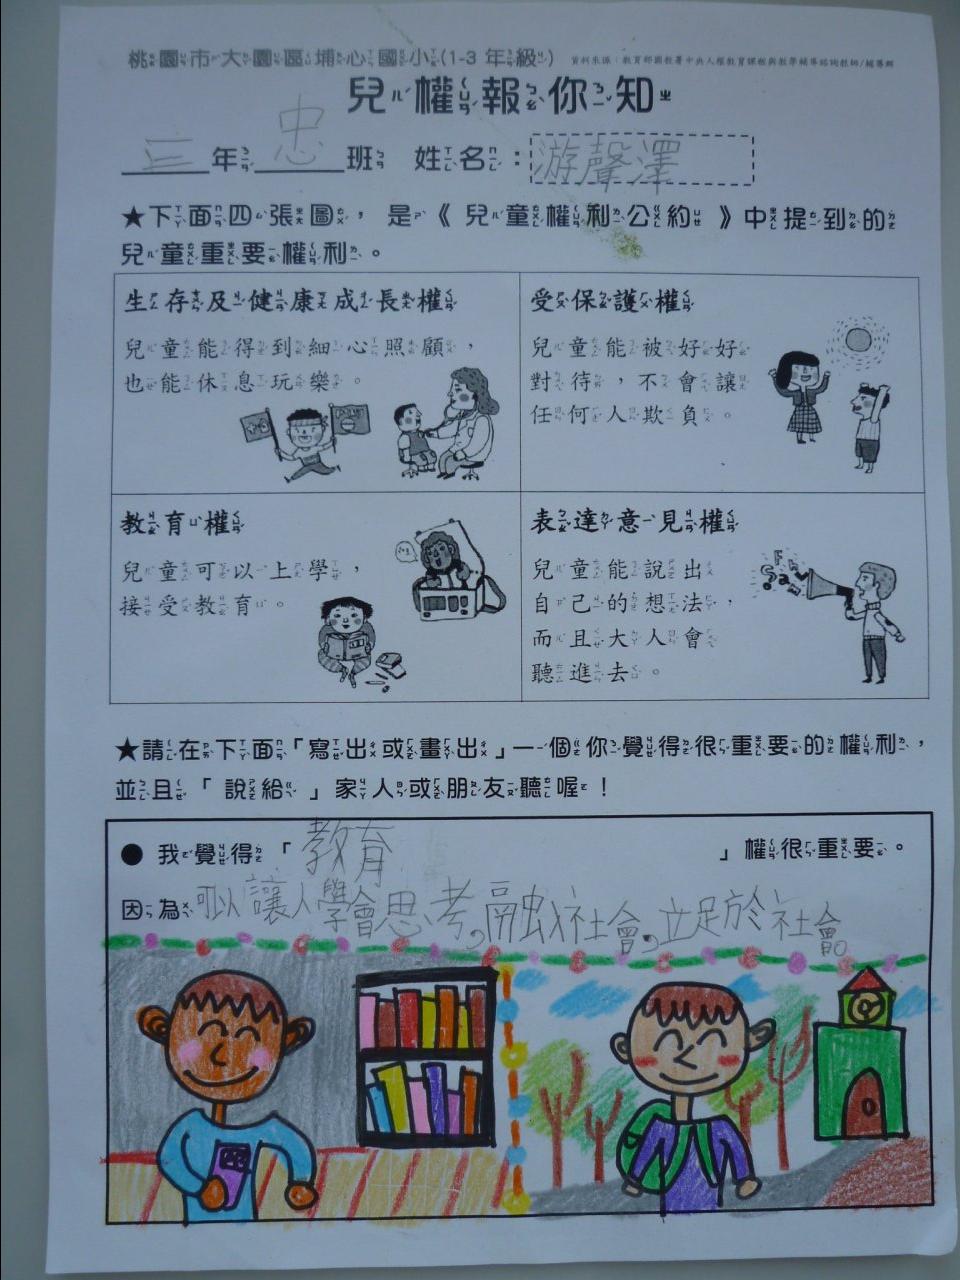 桃園市大園區埔心國小(1-3 年級)
資料來源：教育部國教署中央人權教育課程與教學輔導諮詢教師/輔導群
兒權報你知
三年忠班 姓名：游馨澤
★下面四張圖，是《兒童權利公約》中提到的
兒童重要權利。
生存及健康成長權
兒童能得到細心照顧，
也能休息玩樂。
受保護權
兒童能被好好
對待，不會讓
任何人欺負。
教育權
兒童可以上學，
接受教育。
表達意見權
兒童能說出
自己的想法，
而且大人會
聽進去。
★請在下面「寫出或畫出」一個你覺得很重要的權利，
並且「說給」家人或朋友聽喔！
●我覺得「教育」權很重要。
因為可以讓人學會思考，融入社會，立足於社會。